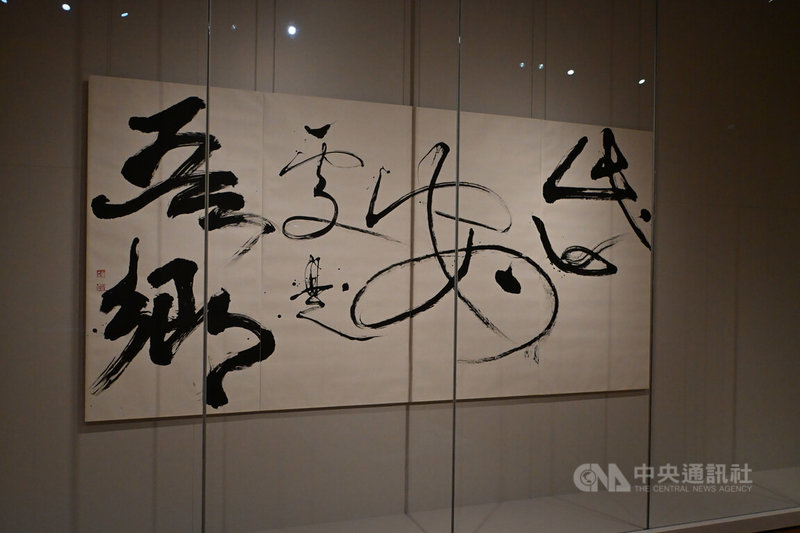 此心
安
處是
吾鄉
CNA 中央通訊社
THE CENTRAL NEWS AGENCY